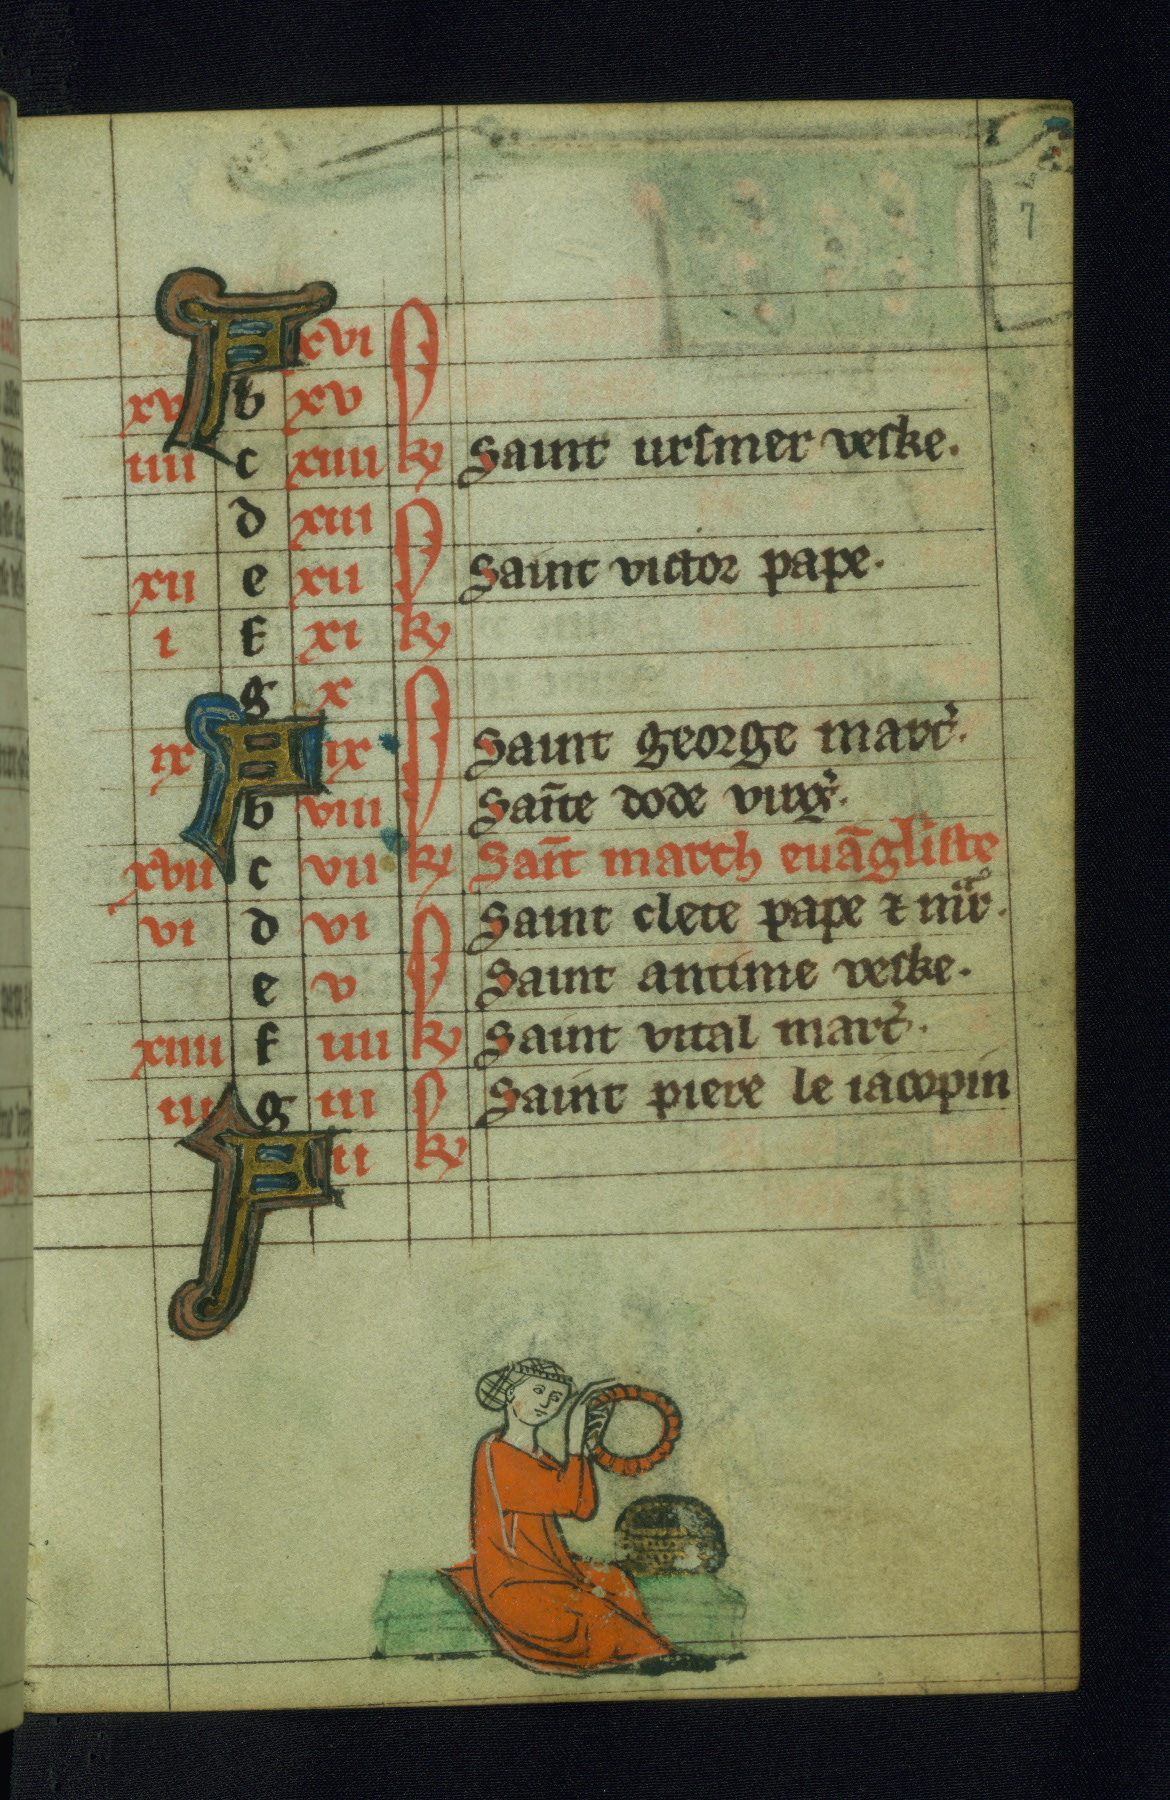 7
A xvi
xv b xv
iiii c xiiii kl Saint ursmer veske.
d xiii
xii e xii Saint victor pape.
i f xi kl
g x
ix A ix Saint george mart̉.
b viii Sain̄te dode virg̉.
xvii c vii kl Sain̄t march euāgliste
vi d vi Saint clete pape ⁊ mr̄.
e v Saint antime veske.
xiiii f iiii kl Saint vital mart̉.
iii g iii Saint piere le iacopin
A ii kl